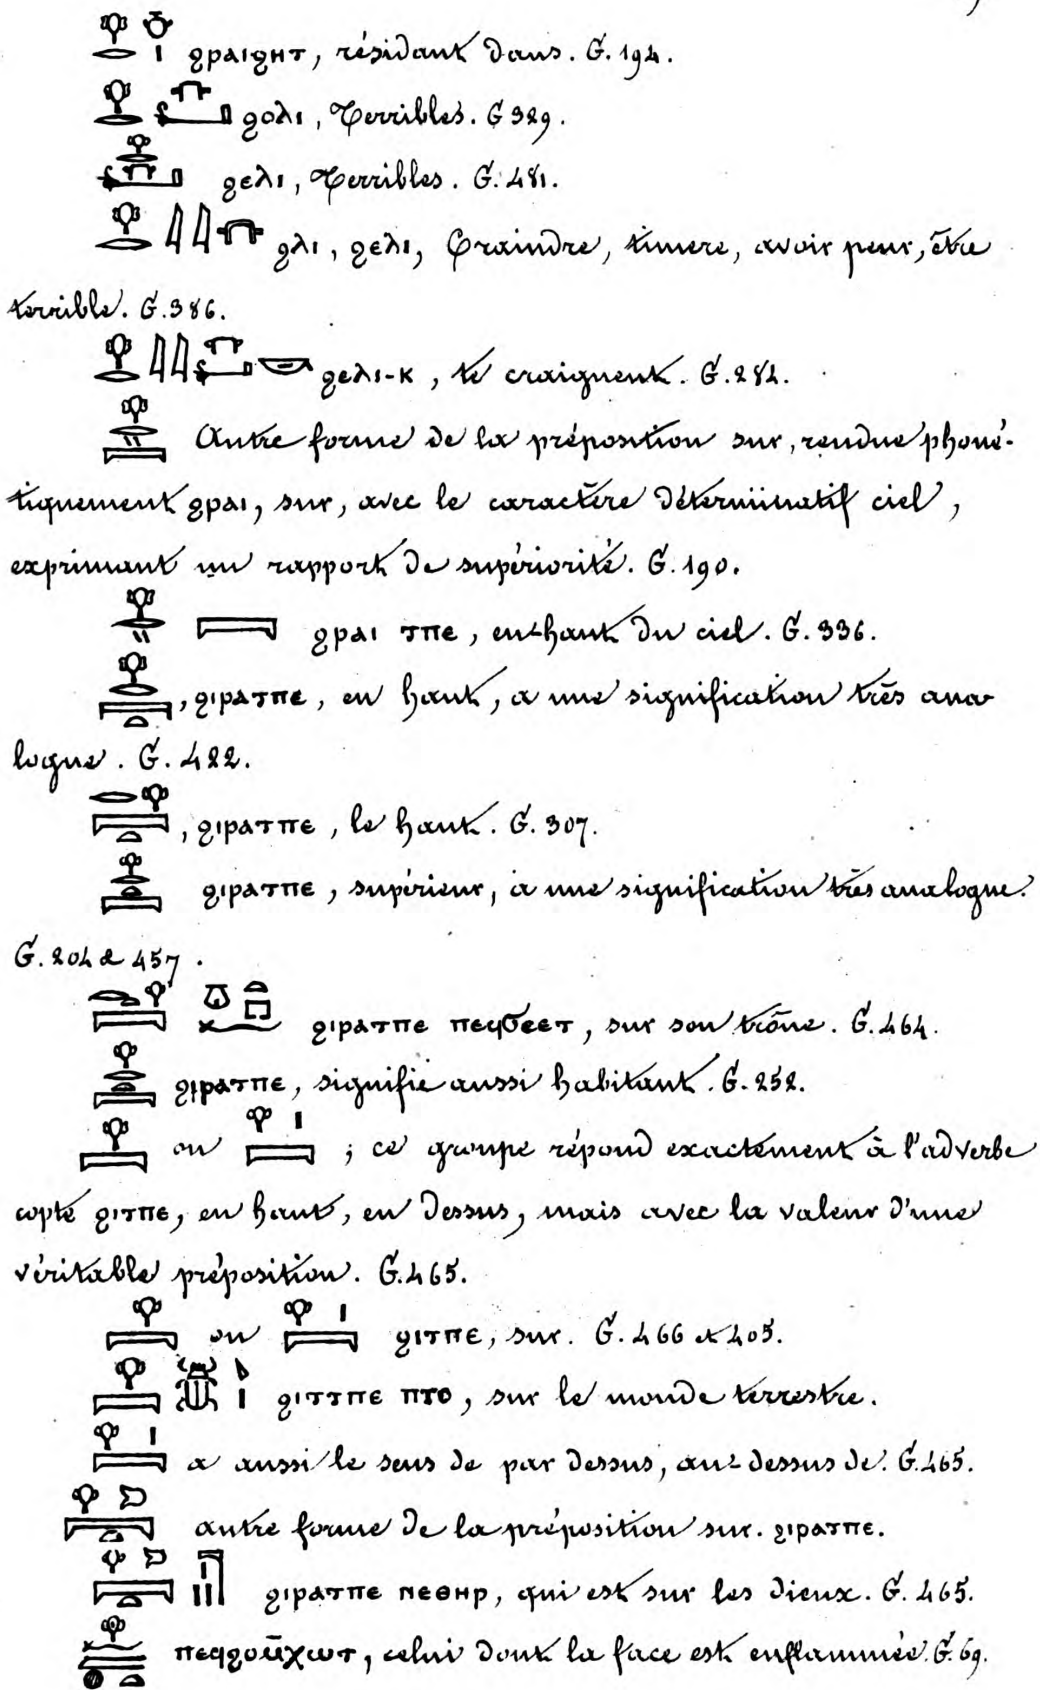 ϩραιϩнт, résidant dans. G. 194.
ϩολι, Terribles. G 329.
ϩελι, Terribles. G. 481.
ϩλι, ϩελι, Craindre, timere, avoir peur, être
terrible. G. 386.
ϩελι-κ, te craignent. G. 284.
Autre forme de la préposition sur, rendue phoné-
tiquement ϩραι, sur, avec le caractère déterminatif ciel,
exprimant un rapport de supériorité. G. 190.
ϩραι τπε, en-haut du ciel. G. 336.
, ϩιρατπε, en haut, a une signification très ana-
logue. G. 422.
, ϩιρατπε, le haut. G. 307.
ϩιρατπε, supérieur, a une signification très analogue.
G. 204 & 457.
ϩιρατπε πεϥϭεετ, sur son trône. G. 464.
ϩιρατπε, signifie aussi habitant. G. 252.
ou ; ce groupe répond exactement à l'adverbe
copte ϩιτπε, en haut, en dessus, mais avec la valeur d'une
véritable préposition. G. 465.
ou ϩιτπε, sur. G. 466 et 405.
ϩιττπε πτο, sur le monde terrestre.
a aussi le sens de par dessus, au-dessus de. G. 465.
autre forme de la préposition sur. ϩιρατπε.
ϩιρατπε ΝΕΘΗΡ, qui est sur les dieux. G. 465.
celui dont la face est enflammée. G. 69.